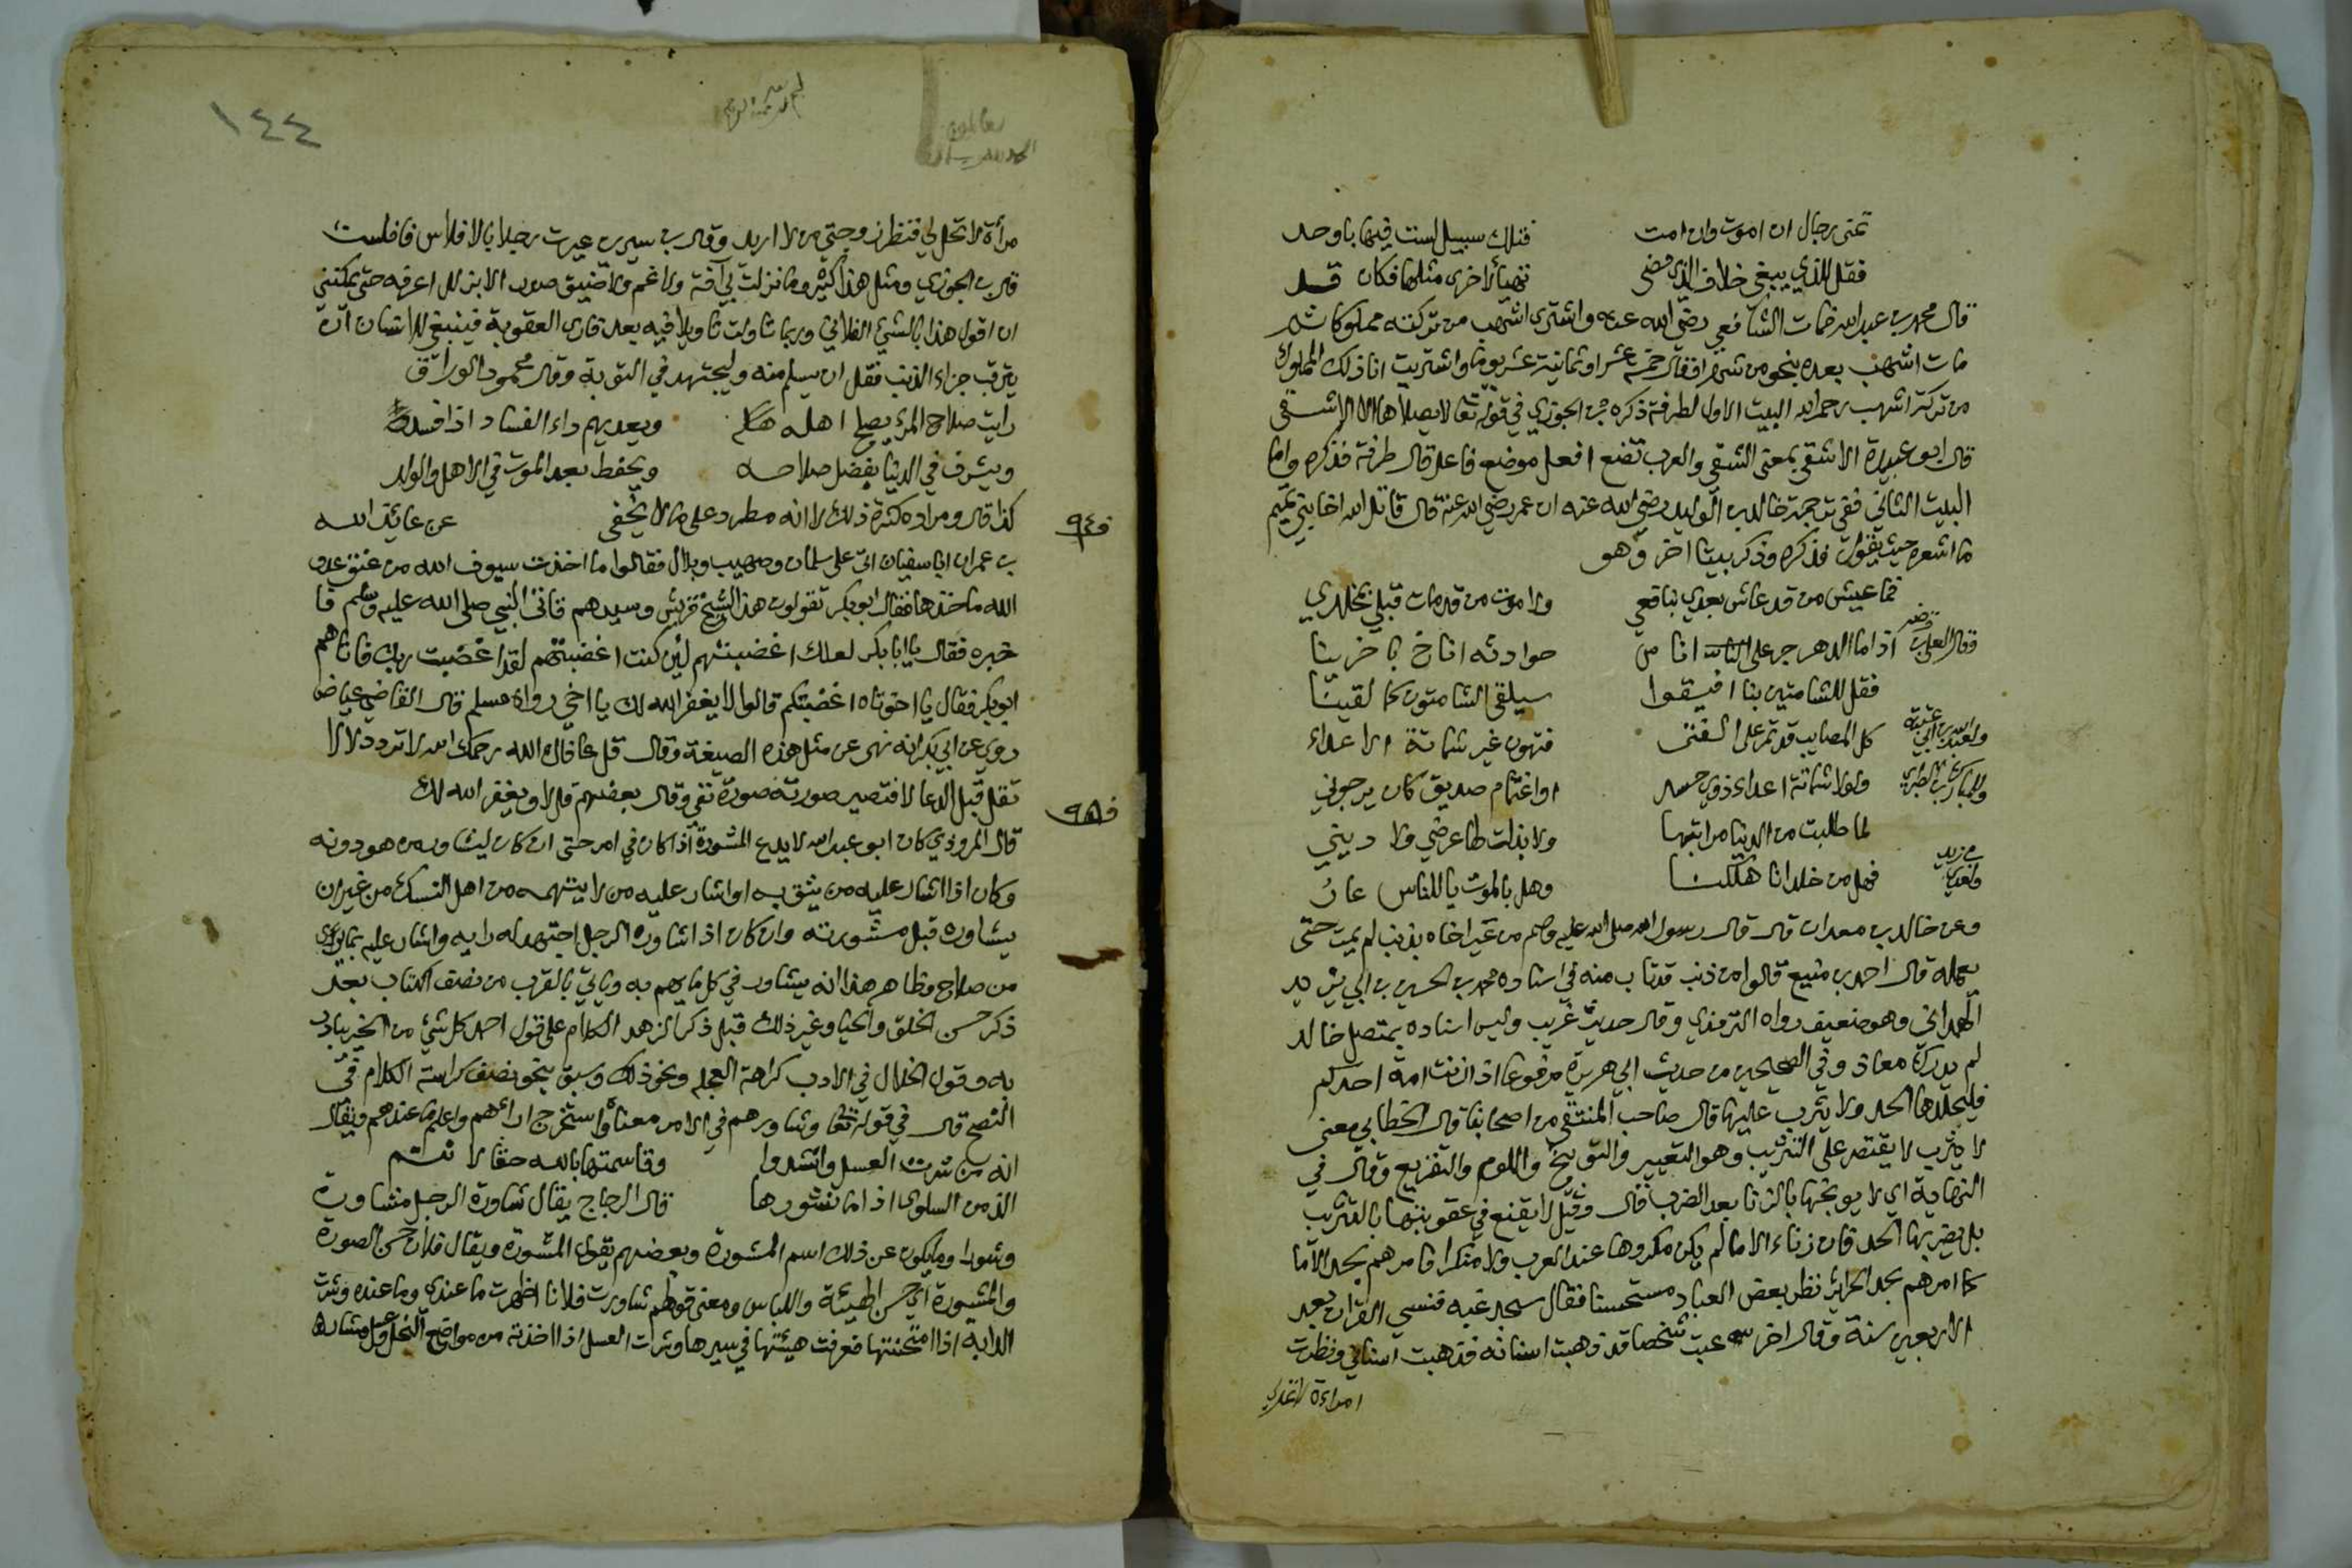 تمنى رجال ان اموت وان امت فتلك سبيل لست فيها باوحد
فقل للذي يبغي خلاف الذي مضى تهيأ لاخرى مثلها فكان قد
قال محمد بن عبد الله فمات الشافعي رضي الله عنه واشترى اشهب من تركته مملوكا ثم
مات اشهب بعده بنحو من شهر او قال خمسة عشر او ثمانية عشر يوما واشتريت انا ذلك المملوك
من تركة اشهب رحمه الله البيت الاول لطرفة ذكره بن الجوزي في قوله تعا لا يصلاها الا الاشقى
قال ابو عبيدة الاشقى بمعنى الشقي والعرب تضع افعل موضع فاعل قال طرفة فذكره واما
البيت الثاني ففي ترجمة خالد بن الوليد رضي الله عنه ان عمر رضي الله عنه قال قاتل الله اخا بني تميم
ما اشعره حيث يقول فذكره وذكر بيتا اخر وهو
فما عيش من قد عاش بعدي بنافعي ولا موت من قد مات قبلي بمخلدي
وقال العلا بن قرضة اذا ما الدهر جر على اناس حوادثه اناخ باخرينا
فقل للشامتين بنا افيقوا سيلقى الشامتون كما لقينا
ولعبد الله بن ابي عتبة كل المصايب قد تمر على الفتى فتهون غير شماتة الاعداء
وللمبارك بن الطبري ولولا شماتة اعداء ذوي حسد او اغتمام صديق كان يرجوني
لما طلبت من الدنيا مراتبها ولا بذلت لها عرضي ولا ديني
ولعدي بن زيد فهل من خالد اما هلكنا وهل بالموت يا للناس عار
وعن خالد بن معدان قال قال رسول الله صلى الله عليه وسلم من عير اخاه بذنب لم يمت حتى
يعمله قال احمد بن منيع قالوا من ذنب قد تاب منه في اسناده محمد بن الحسن بن ابي يزيد
الهمداني وهو ضعيف رواه الترمذي وقال حديث غريب وليس اسناده بمتصل خالد
لم يدرك معاذ وفي الصحيحين من حديث ابي هريرة مرفوعا اذا زنت امة احدكم
فليجلدها الحد ولا يثرب عليها قال صاحب المنتقى من اصحابنا قال الخطابي معنى
لا يثرب لا يقتصر على التثريب وهو التعيير والتوبيخ واللوم والتقريع وقال في
النهاية اي لا يوبخها بالزنا بعد الضرب قال وقيل لا يقنع في عقوبتها بالتثريب
بل يضربها الحد فان زناء الاما لم يكن مكروها عند العرب ولا منكرا فامرهم بحد الاما
كما امرهم بحد الحراير نظر بعض العباد مستحسنا فقال ستجد غبه فنسي القران بعد
الاربعين سنة وقال اخر عبت شخصا قد ذهبت اسنانه فذهبت اسناني ونظرت
امراءة لا تحل لي
١٤٤
بسم الله الرحمن الرحيم
مراة لا تحل لي فنظر زوجتي من لا اريد وقال بن سيرين عيرت رجلا بالافلاس فافلست
قال بن الجوزي ومثل هذا كثير وما نزلت بي آفة ولا غم ولا ضيق صدر الا بزلل اعرفه حتى يمكنني
ان اقول هذا بالشيء الفلاني وربما تاولت تاويلا فيه بعد فارى العقوبة فينبغي للانسان ان
يترقب جزاء الذنب فقل ان يسلم منه وليجتهد في التوبة وقال محمود الوراق
رايت صلاح المرء يصلح اهله ويعديهم داء الفساد اذا فسد
ويشرف في الدنيا بفضل صلاحه ويحفظ بعد الموت في الاهل والولد
كذا قال ومراده كثرة ذلك لا انه مطرد على ما لا يخفى عن عائذ الله
فصل بن عمر ان ابا سفيان اتى على سلمان وصهيب وبلال فقالوا ما اخذت سيوف الله من عنق عدو
الله ماخذها فقال ابو بكر تقولون هذا لشيخ قريش وسيدهم فاتى النبي صلى الله عليه وسلم فا
خبره فقال يا ابا بكر لعلك اغضبتهم لئن كنت اغضبتهم لقد اغضبت ربك فاتاهم
ابو بكر فقال يا اخوتاه اغضبتكم قالوا لا يغفر الله لك يا اخي رواه مسلم قال القاضي عياض
روي عن ابي بكر انه نهى عن مثل هذه الصيغة وقال قل عافاك الله رحمك الله لا تزد لا
تقل قبل الدعا لا فتصير صورته صورة نفي وقال بعضهم قل لا ويغفر الله لك
فصل قال المروذي كان ابو عبد الله لا يدع المشورة اذا كان في امر حتى ان كان ليشاور من هو دونه
وكان اذا اشار عليه من يثق به او اشار عليه من لا يتهمه من اهل النسك من غير ان
يشاوره قبل مشورته وان كان اذا شاوره الرجل اجتهد له رايه واشار عليه بما يرى
من صلاح وظاهر هذا انه يشاور في كل ما يهم به وياتي بالقرب من نصف الكتاب بعد
ذكر حسن الخلق والحيا وغير ذلك قبل ذكر الزهد الكلام على قول احمد كل شيء من الخير يبادر
به وقول الخلال في الادب كراهة العجلة ونحو ذلك وسبق بنحو نصف كراسة الكلام في
النصح قال في قوله تعا وشاورهم في الامر معناه استخرج اراءهم واعلم ما عندهم ويقال
انه من شرت العسل وانشدوا وقاسمتها بالله حقا لا نتم
الذ من السلوى اذا ما نشورها قال الزجاج يقال شاورت الرجل مشاورة
وشورا وما يكون عن ذلك اسم المشورة وبعضهم يقول المشورة ويقال فلان حسن الصورة
والمشورة اي حسن الهيئة واللباس ومعنى قولهم شاورت فلانا اظهرت ما عندي وما عنده وشرت
الدابة اذا امتحنتها فعرفت هيئتها في سيرها وشرت العسل اذا اخذته من مواضع النحل وعسل مشار